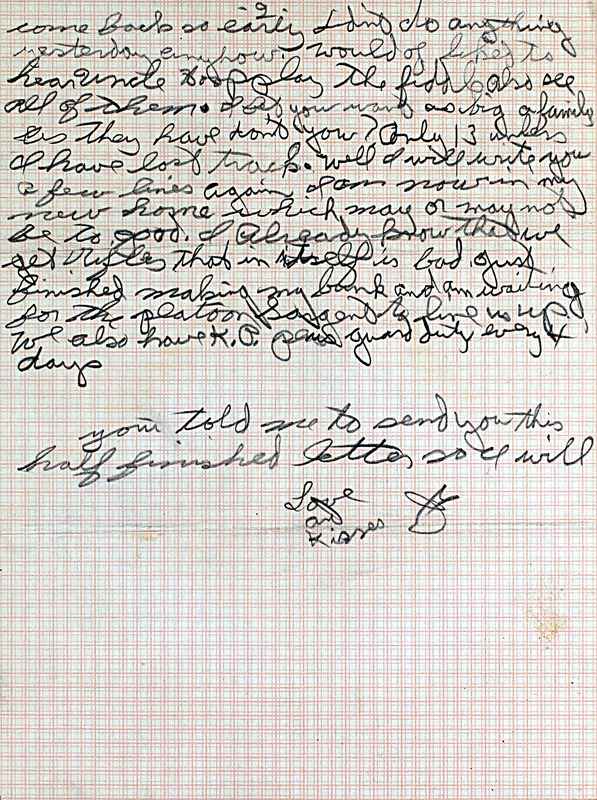 9
come back so early I didnt do anything
yesterday anyhow would of liked to
hear Uncle play the fiddle also see
all of them. I bet you want as big a family
as they have dont you? Only 13 unless
I have lost track. well I will write you
a few lines again I am now in my
new home which may or may not
be to good. I Already know that we
get rifles that in itself is bad just
finished making my bunk and am waiting
for the platoon Sargent to line us up
we also have K.P. plus guard duty every 4
days
you told me to send you this
half finished letter so I will
Love
and
Kisses